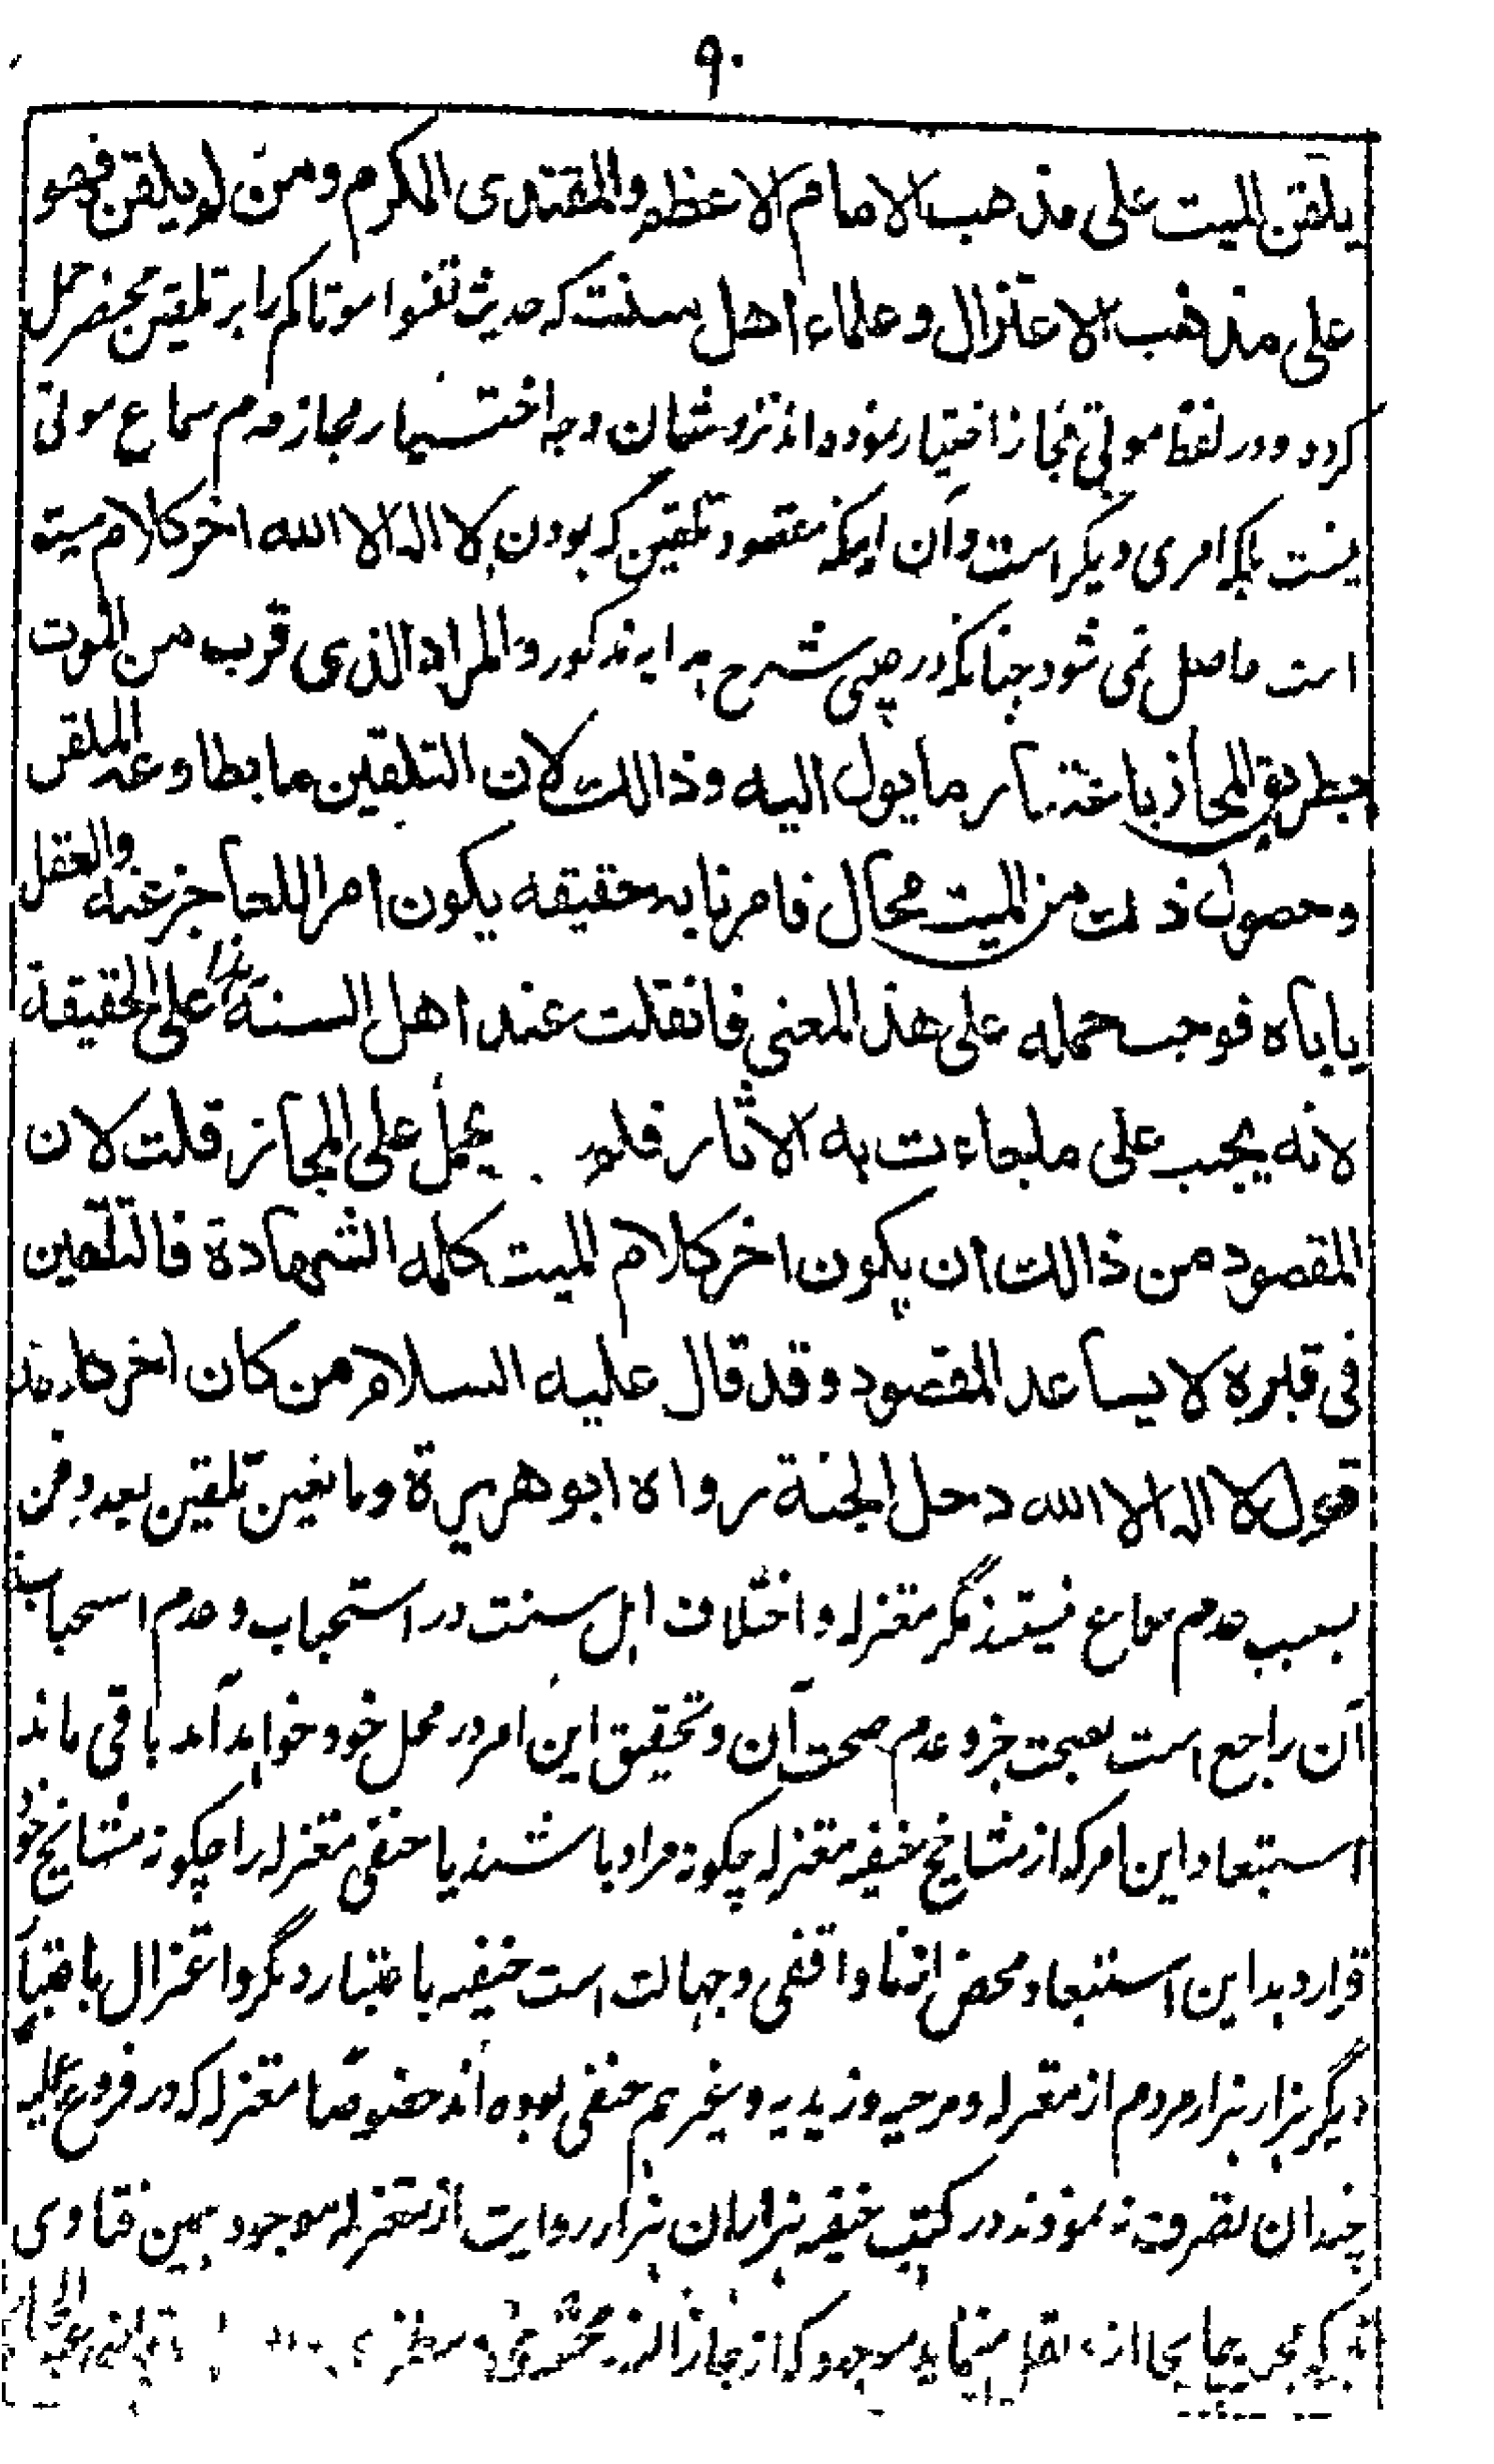 ۹۰
يلقن الميت على مذهب الامام الاعظم والمقتدى المكرم ومن لم يلقن فهو
على مذهب الاعتزال وعلماء اهل سنت که حدیث لقنوا موتاکم را بر تلقین محتضر حمل
کرده و در لفظ موتی مجاز اختیار نموده اند نزد شان وجه اختیار مجاز عدم سماع موتی
نیست بلکه امری دیگر است و آن اینکه مقصود تلقین که بودن لا اله الا الله اخر کلام میت
است حاصل نمی شود چنانکه در عینی شرح هدایه مذکور والمراد الذى قرب من الموت
بطريق المجاز باعتبار مايول اليه وذالك لان التلقين ما يطاوعه الملقن
وحصول ذلك من الميت محال فامرنا به حقيقه يكون امرا للعاجز عنه والعقل
ياباه فوجب حمله على هذ المعنى فانقلت عند اهل السنة هذا على الحقيقة
لانه يجب على ماجاءت به الاثار فلم يحمل على المجاز قلت لان
المقصود من ذالك ان يكون اخر كلام الميت كلمه الشهادة فالتلقين
فى قبره لا يساعد المقصود وقد قال عليه السلام من كان اخر كلامه
قول لا اله الا الله دخل الجنة رواه ابو هريرة و مانعین تلقین بعد دفن
بسبب عدم سماع نیستند مگر معتزله و اختلاف اهل سنت در استحباب و عدم استحباب
آن راجع است بصحت خبر و عدم صحت آن و تحقیق این امر در محل خود خواهد آمد باقی ماند
استبعاد این امر که از مشایخ حنیفه معتزله چگونه مراد باشند یا حنفی معتزله را چگونه مشایخ خود
قرار دهد این استبعاد محض از نا واقفی و جهالت است حنیفه باعتبار دگر و اعتزال باعتبار
دیگر هزار هزار مردم از معتزله و مرجیه و زیدیه و غیرهم حنفی بوده اند خصوصا معتزله که در فروع علیه
چندان تصرف نه نمودند در کتب حنیفه هزاران هزار روایت از معتزله موجود همین فتاوی
که از نقل مینماید موجود که از